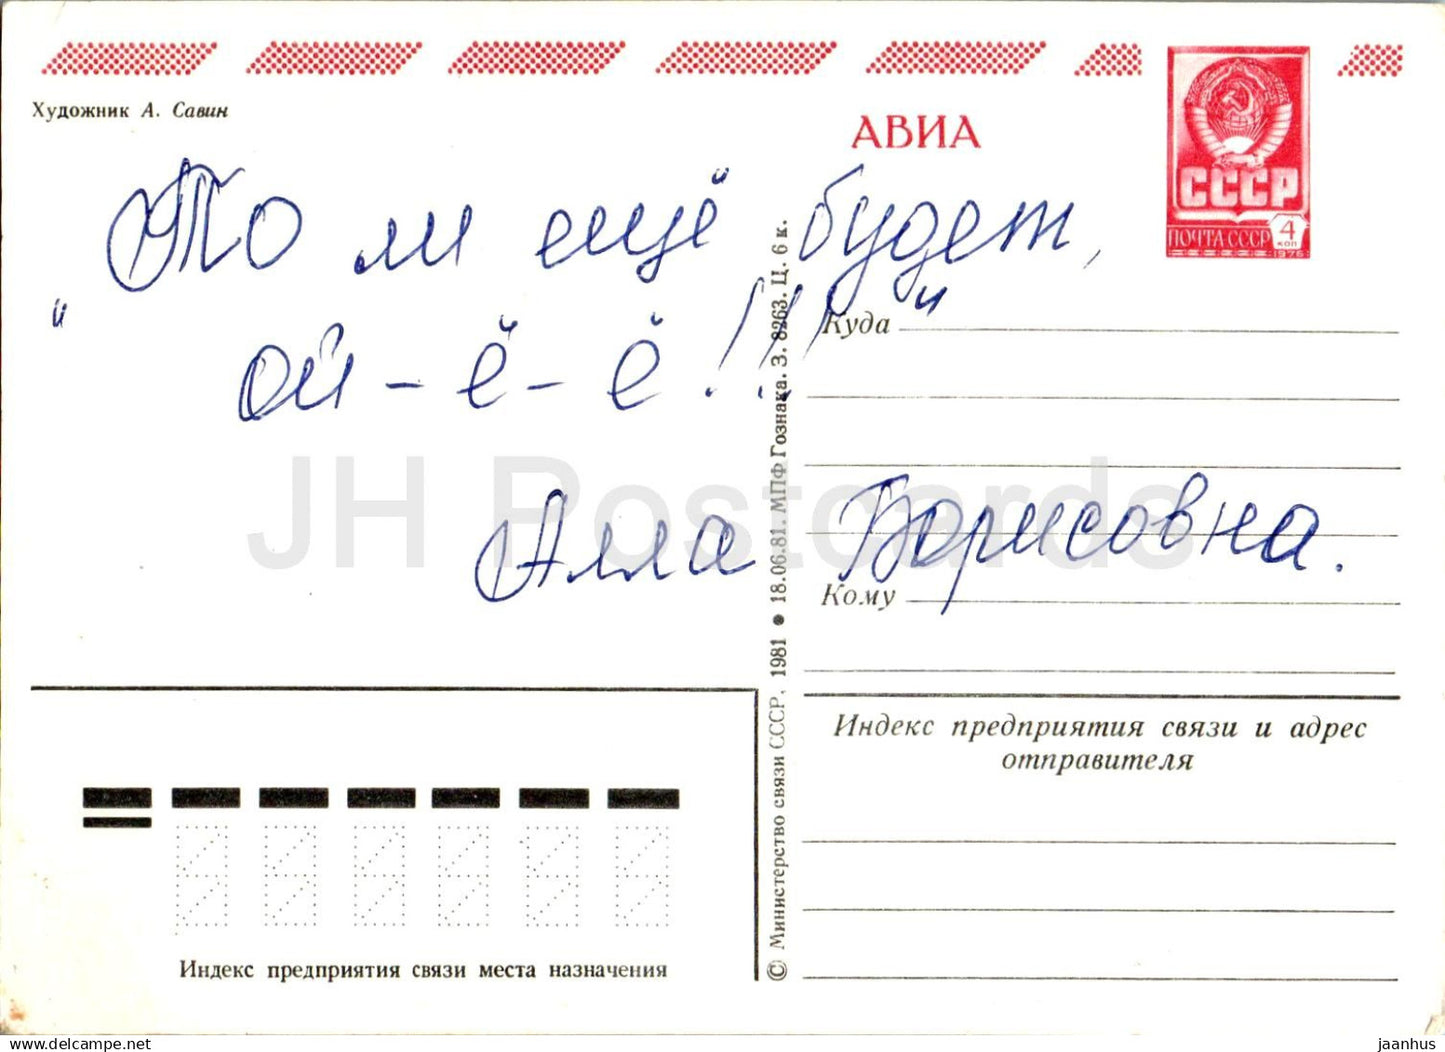 Художник А. Савин
АВИА
СССР
ПОЧТА СССР 4 КОП
1976
То ли ещё будет,
"ой-ё-ё!!!"
Алла Борисовна.
Куда
Кому
Индекс предприятия связи и адрес
отправителя
Индекс предприятия связи места назначения
© Министерство связи СССР, 1981 ● 18.06.81. МПФ Гознака. З. 8263. Ц. 6 к.
JH Postcards
delcampe.net
jaanhus